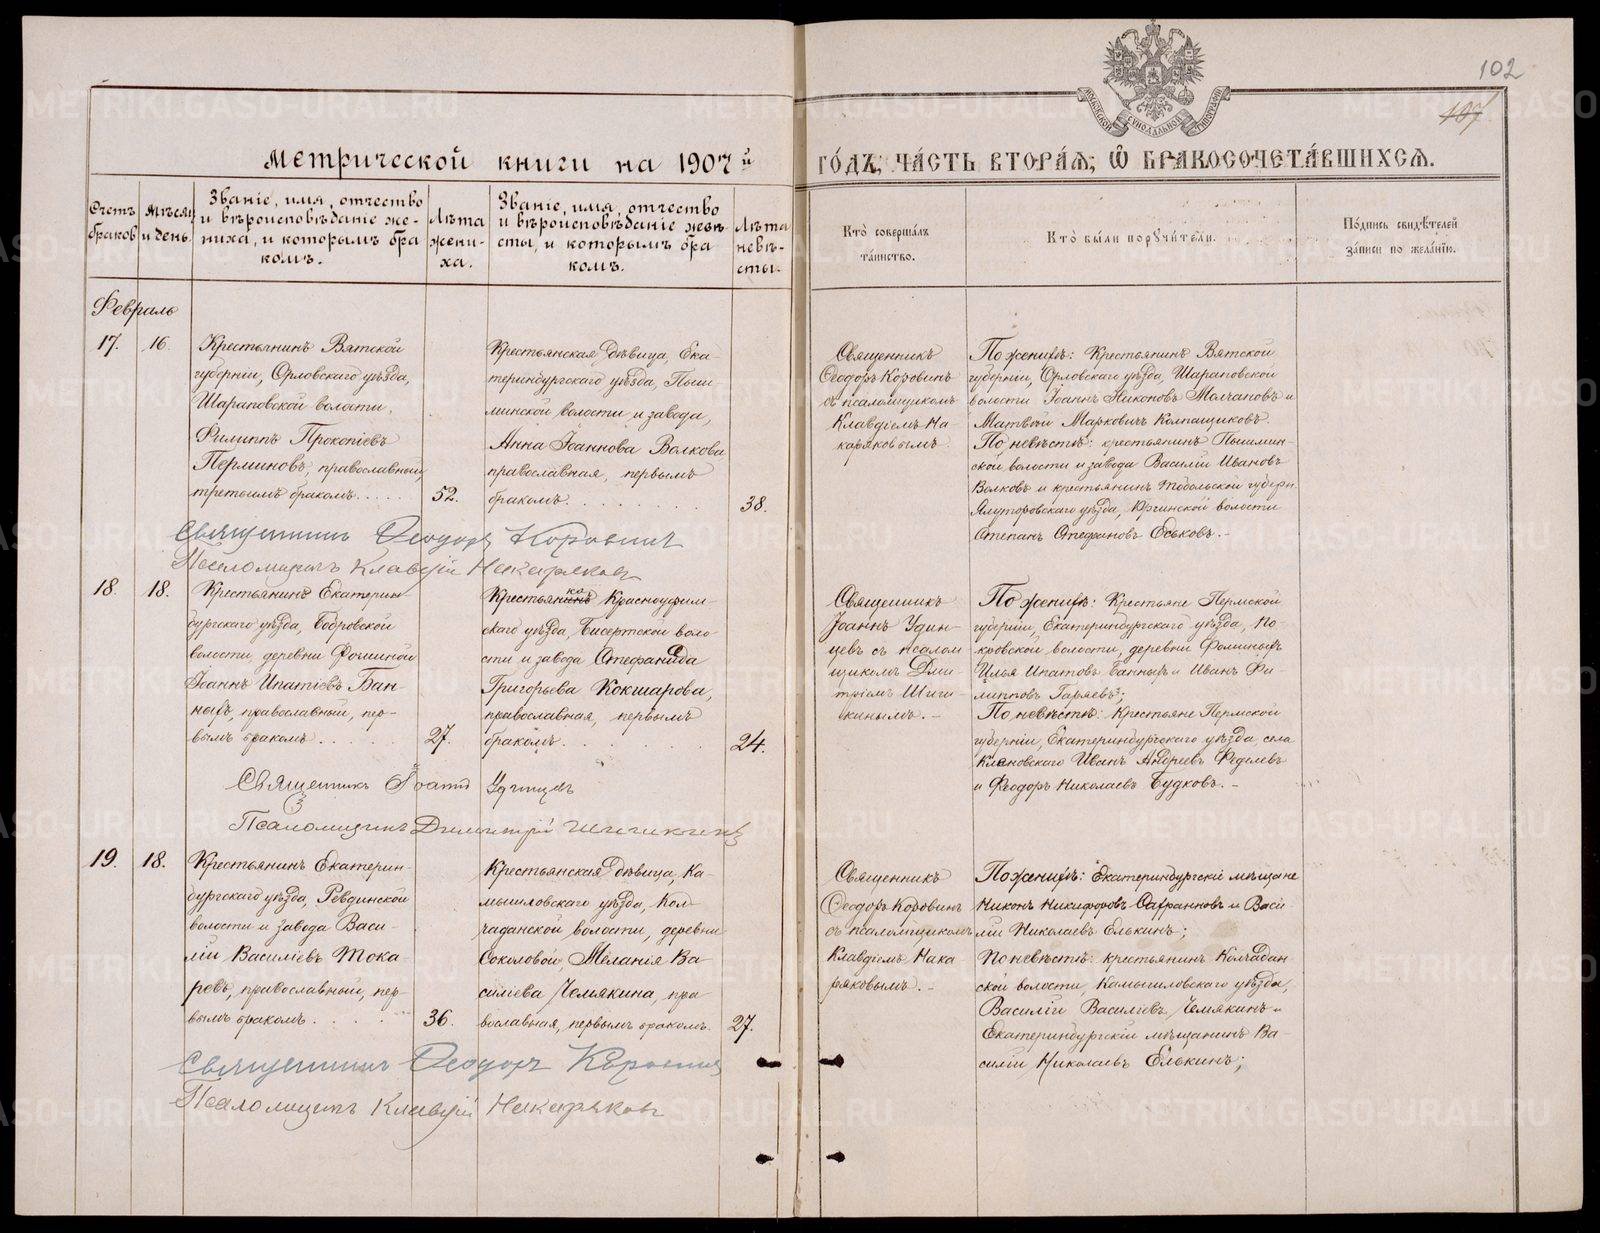 102
107
Метрической книги на 1907й
го́дъ, ча́сть втора́ѧ, ѡ҆ бракосочета́вшихсѧ.
Счетъ браковъ
Мѣсяцъ и день.
Званіе, имя, отчество
и вѣроисповѣданіе же-
ниха, и которымъ бра
комъ.
Лѣта
жени-
ха.
Званіе, имя, отчество
и вѣроисповѣданіе невѣ-
сты, и которымъ бра
комъ.
Лѣта
невѣ-
сты.
Кто̀ соверша́лъ
та́инство.
Кто̀ бы́ли порꙋчи́тели.
По́дпись свидѣ́телей
за́писи по жела́нію.
Февраль
17.
16.
Крестьянинъ Вятской
губерніи, Орловскаго уѣзда,
Шараповской волости,
Филиппъ Прокопіевъ
Перминовъ, православный,
третьимъ бракомъ.....
52.
Крестьянская дѣвица, Ека-
теринбургскаго уѣзда, Пыш-
минской волости и завода,
Анна Іоаннова Волкова
православная, первымъ
бракомъ.........
38.
Священникъ
Ѳеодоръ Коровинъ
съ псаломщикомъ
Клавдіемъ На-
каряковымъ.
По женихѣ: Крестьянинъ Вятской
губерніи, Орловскаго уѣзда, Шараповской
волости Іоаннъ Никоновъ Молчановъ и
Матвѣй Марковичъ Колпащиковъ.
По невѣстѣ: крестьянинъ Пышмин-
ской волости и завода Василій Ивановъ
Волковъ и крестьянинъ Тобольской губерн.
Ялуторовскаго уѣзда, Юргинской волости
Степанъ Стефановъ Еськовъ.-
Священникъ Ѳеодоръ Коровинъ
Псаломщикъ Клавдій Накаряковъ
18.
18.
Крестьянинъ Екатерин-
бургскаго уѣзда, Бобровской
волости, деревни Фоминой
Іоаннъ Ипатіевъ Бан-
ныхъ, православный, пер-
вымъ бракомъ.....
27.
Крестьянка Красноуфим-
скаго уѣзда, Бисертской воло-
сти и завода Стефанида
Григорьева Кокшарова,
православная, первымъ
бракомъ.........
24.
Священникъ
Іоаннъ Удин-
цевъ съ псалом
щикомъ Дми-
тріемъ Шиши-
кинымъ.-
По женихѣ: Крестьяне Пермской
губерніи, Екатеринбургскаго уѣзда, По-
кровской волости, деревни Фоминыхъ
Илья Ипатовъ Банныхъ и Иванъ Фи-
липповъ Гаряевъ;
По невѣстѣ: Крестьяне Пермской
губерніи, Екатеринбургскаго уѣзда, села
Кленовскаго Иванъ Андреевъ Ѳеделевъ
и Ѳеодоръ Николаевъ Будковъ.-
Священникъ Іоаннъ Удинцевъ
Псаломщикъ Димитрій Шишкинъ
19.
18.
Крестьянинъ Екатерин-
бургскаго уѣзда, Ревдинской
волости и завода Васи-
лій Василіевъ Тока-
ревъ, православный, пер-
вымъ бракомъ.....
36.
Крестьянская дѣвица, Ка-
мышловскаго уѣзда, Кол-
чаданской волости, деревни
Соколовой, Меланія Ва-
силіева Чемякина, пра-
вославная, первымъ бракомъ.
27.
Священникъ
Ѳеодоръ Коровинъ
съ псаломщикомъ
Клавдіемъ Нака
ряковымъ.-
По женихѣ: Екатеринбургскіе мѣщане
Никонъ Никифоровъ Сафранновъ и Васи-
лій Николаевъ Елькинъ;
По невѣстѣ: крестьянинъ Колчадан-
ской волости, Камышловскаго уѣзда,
Василій Василіевъ Чемякинъ и
Екатеринбургскій мѣщанинъ Ва-
силій Николаевъ Елькинъ;
Священникъ Ѳеодоръ Коровинъ
Псаломщикъ Клавдій Накаряковъ
METRIKI.GASO-URAL.RU